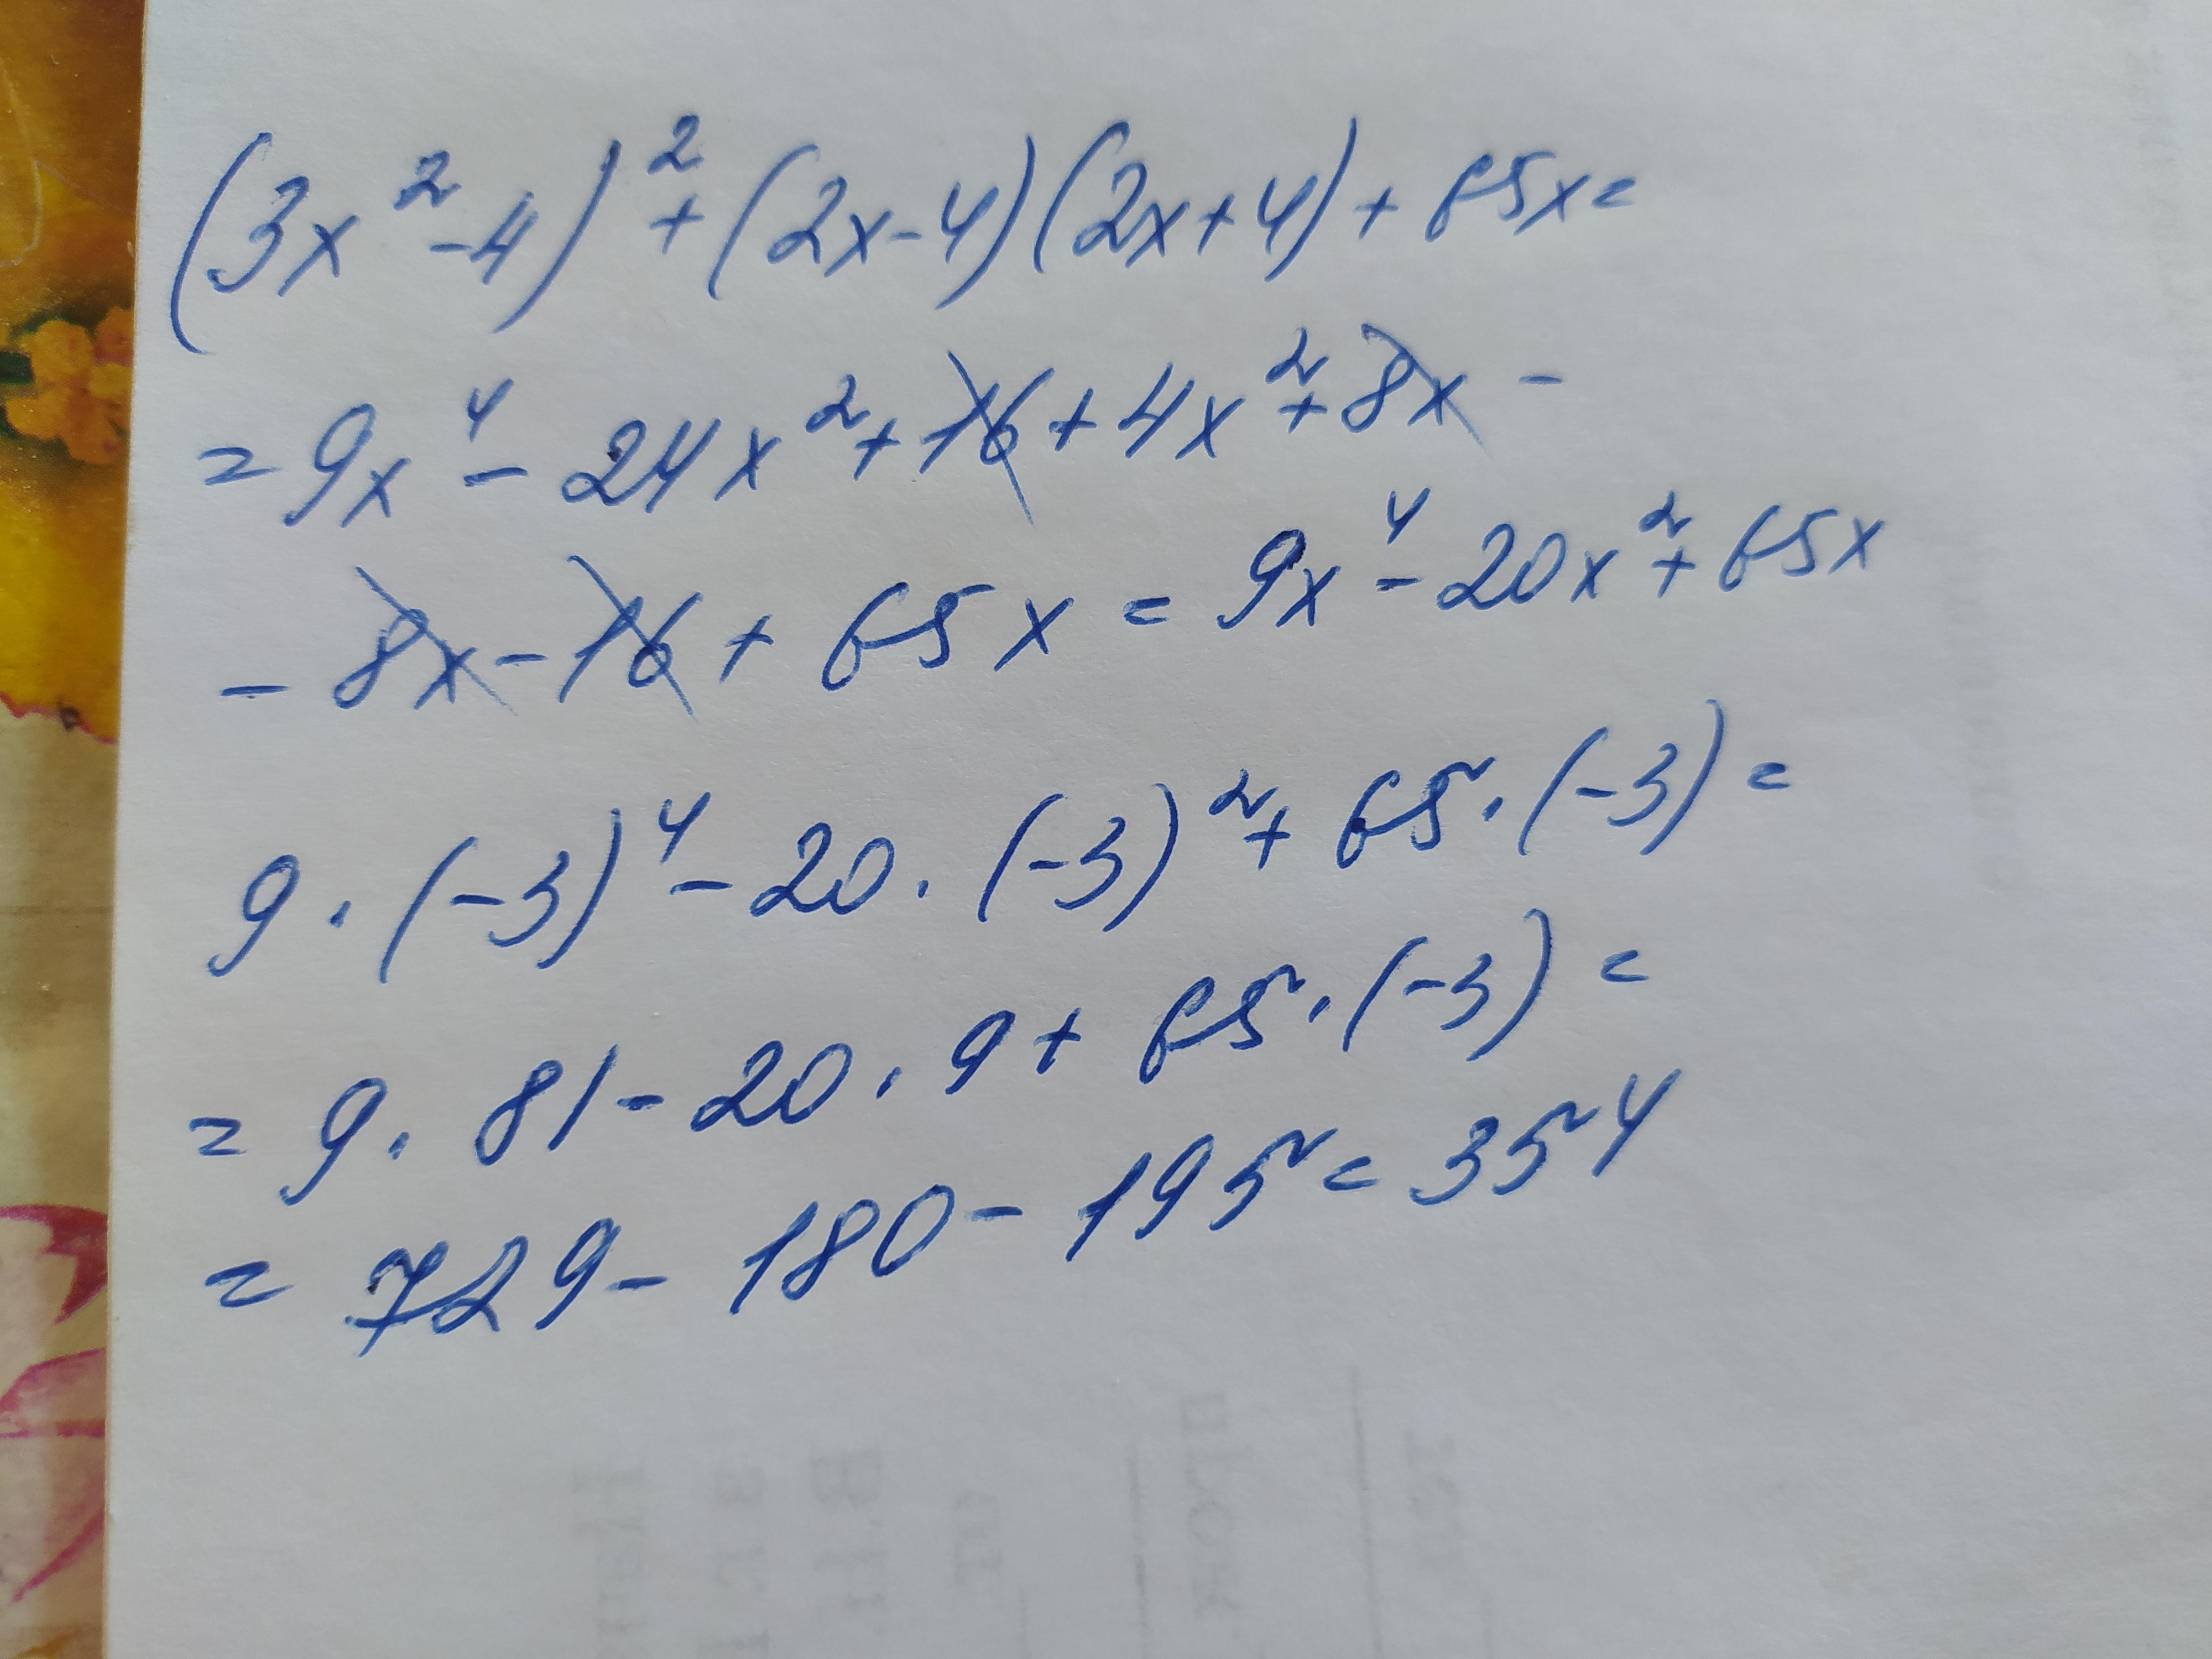 (3x²-4)²+(2x-4)(2x+4)+65x=
=9x⁴-24x²+16+4x²+8x-
-8x-16+65x=9x⁴-20x²+65x
9·(-3)⁴-20·(-3)²+65·(-3)=
=9·81-20·9+65·(-3)=
=729-180-195=354